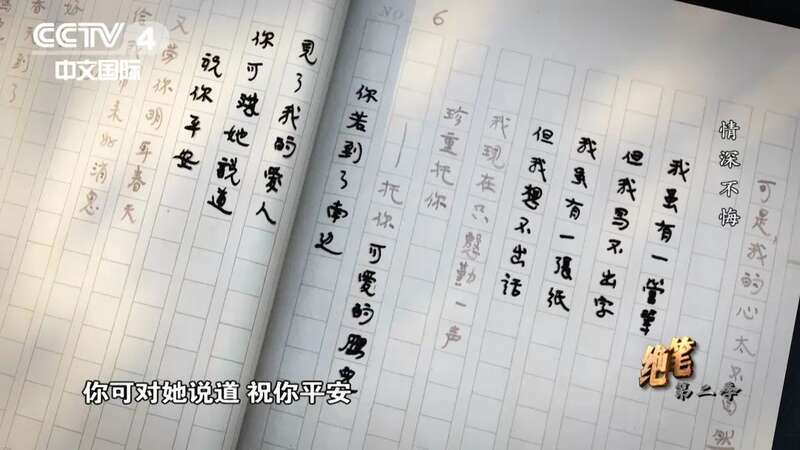 CCTV 4
中文国际
NO 6
情深不悔
可是,我的心太不自然
我虽有一管筆
但我写不出字
我虽有一張紙
但我想不出话
我现在只慇勤一声
珍重托你
——托你可爱的
你若到了南边
見了我的愛人
你可对她說道
祝你平安
又劳你明年春天
来她消息
绝笔
第二季
你可对她说道 祝你平安